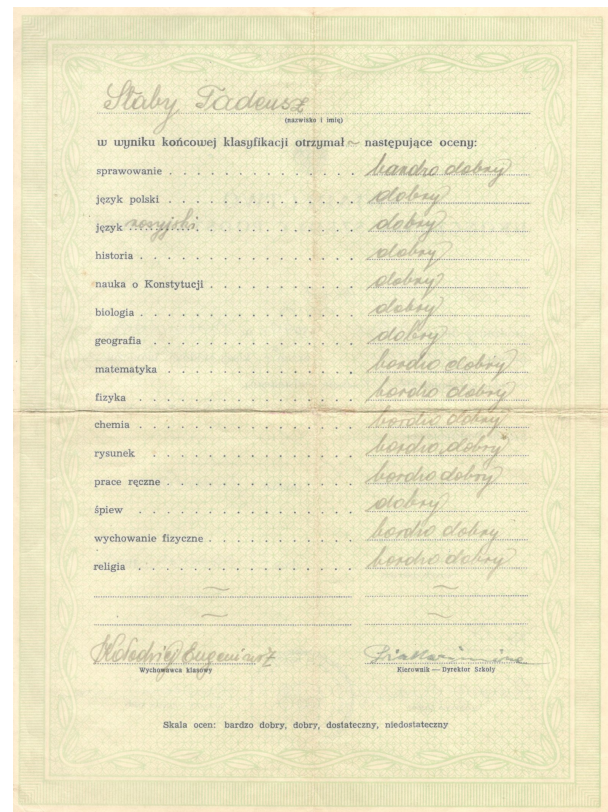 Słaby Tadeusz
(nazwisko i imię)
w wyniku końcowej klasyfikacji otrzymał ~ następujące oceny:
sprawowanie . . . . . . . . . . . . . . bardzo dobry
język polski . . . . . . . . . . . . . . dobry
język rosyjski . . . . . . . . . . . . . . dobry
historia . . . . . . . . . . . . . . dobry
nauka o Konstytucji . . . . . . . . . . . dobry
biologia . . . . . . . . . . . . . . dobry
geografia . . . . . . . . . . . . . . dobry
matematyka . . . . . . . . . . . . . . bardzo dobry
fizyka . . . . . . . . . . . . . . bardzo dobry
chemia . . . . . . . . . . . . . . bardzo dobry
rysunek . . . . . . . . . . . . . . bardzo dobry
prace ręczne . . . . . . . . . . . . . . bardzo dobry
śpiew . . . . . . . . . . . . . . dobry
wychowanie fizyczne . . . . . . . . . . . bardzo dobry
religia . . . . . . . . . . . . . . bardzo dobry
~ ~
~ ~
Kołodziej Eugeniusz
Wychowawca klasowy Kierownik — Dyrektor Szkoły
Skala ocen: bardzo dobry, dobry, dostateczny, niedostateczny